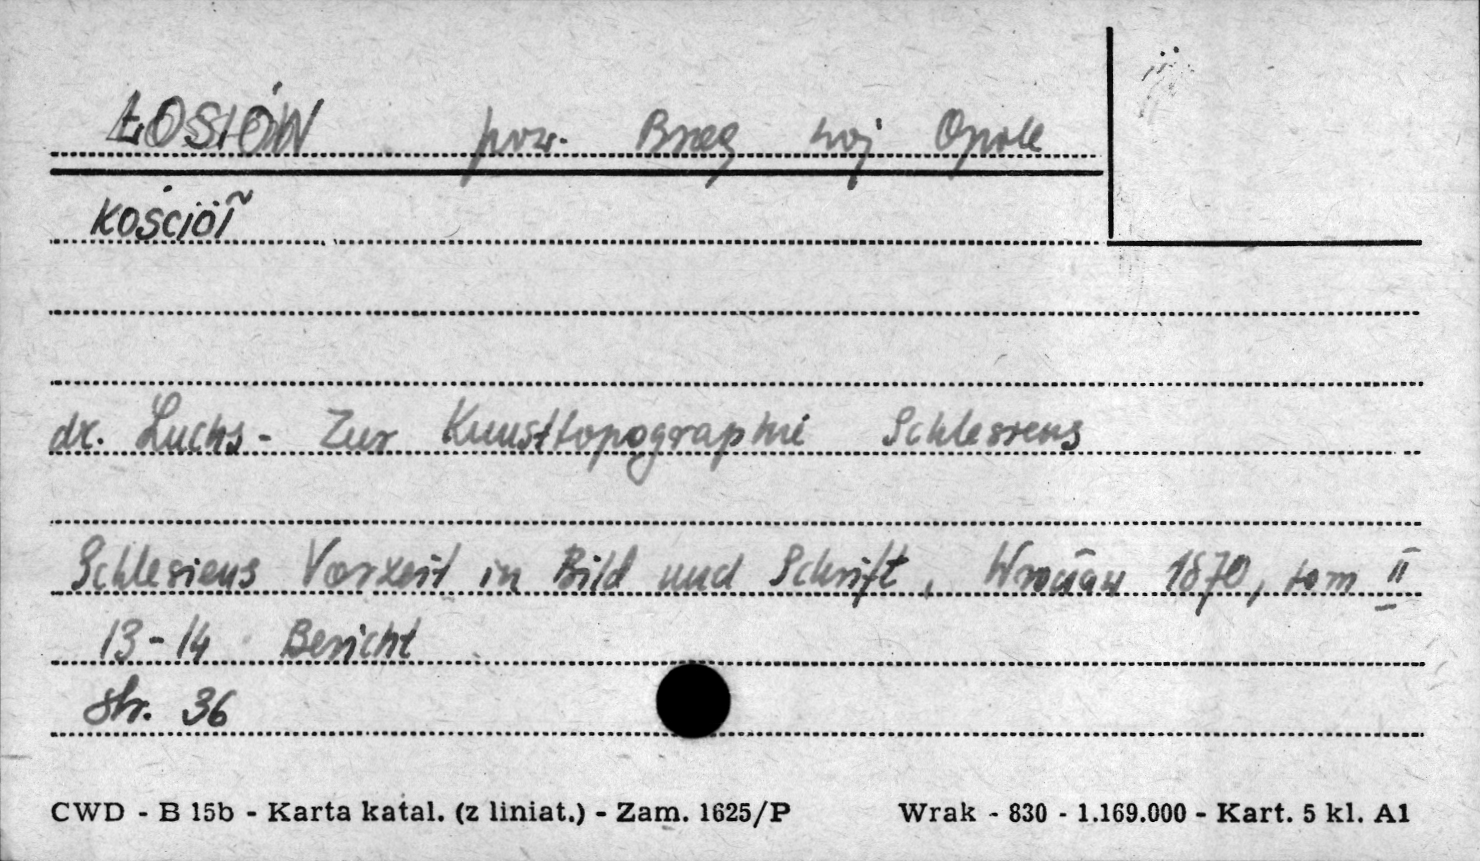 ŁOSIÓW pow. Brzeg woj Opole
KOŚCIÓŁ
dr. Luchs - Zur Kunsttopographie Schlesiens
Schlesiens Vorzeit in Bild und Schrift, Wrocław 1870, tom II
13-14 Bericht
str. 36
CWD - B 15b - Karta katal. (z liniat.) - Zam. 1625/P Wrak - 830 - 1.169.000 - Kart. 5 kl. A1